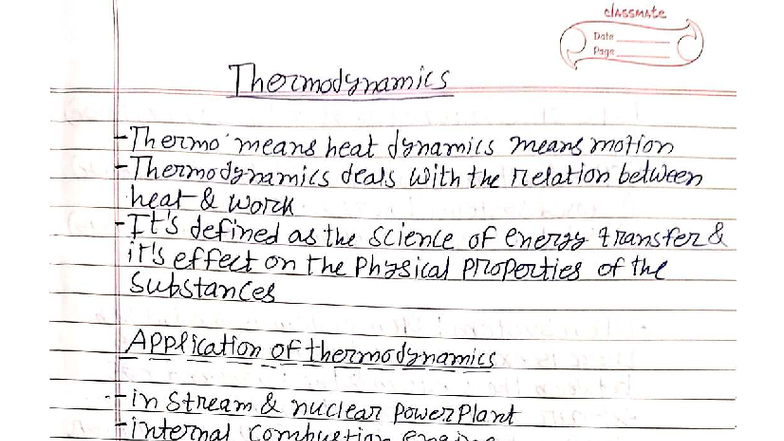 classmate
Date
Page
Thermodynamics
- Thermo' means heat dynamics means motion
- Thermodynamics deals with the relation between
heat & work
- It's defined as the science of energy transfer &
it's effect on the physical properties of the
substances
Application of thermodynamics
- in Stream & nuclear power plant
- internal combustion engine